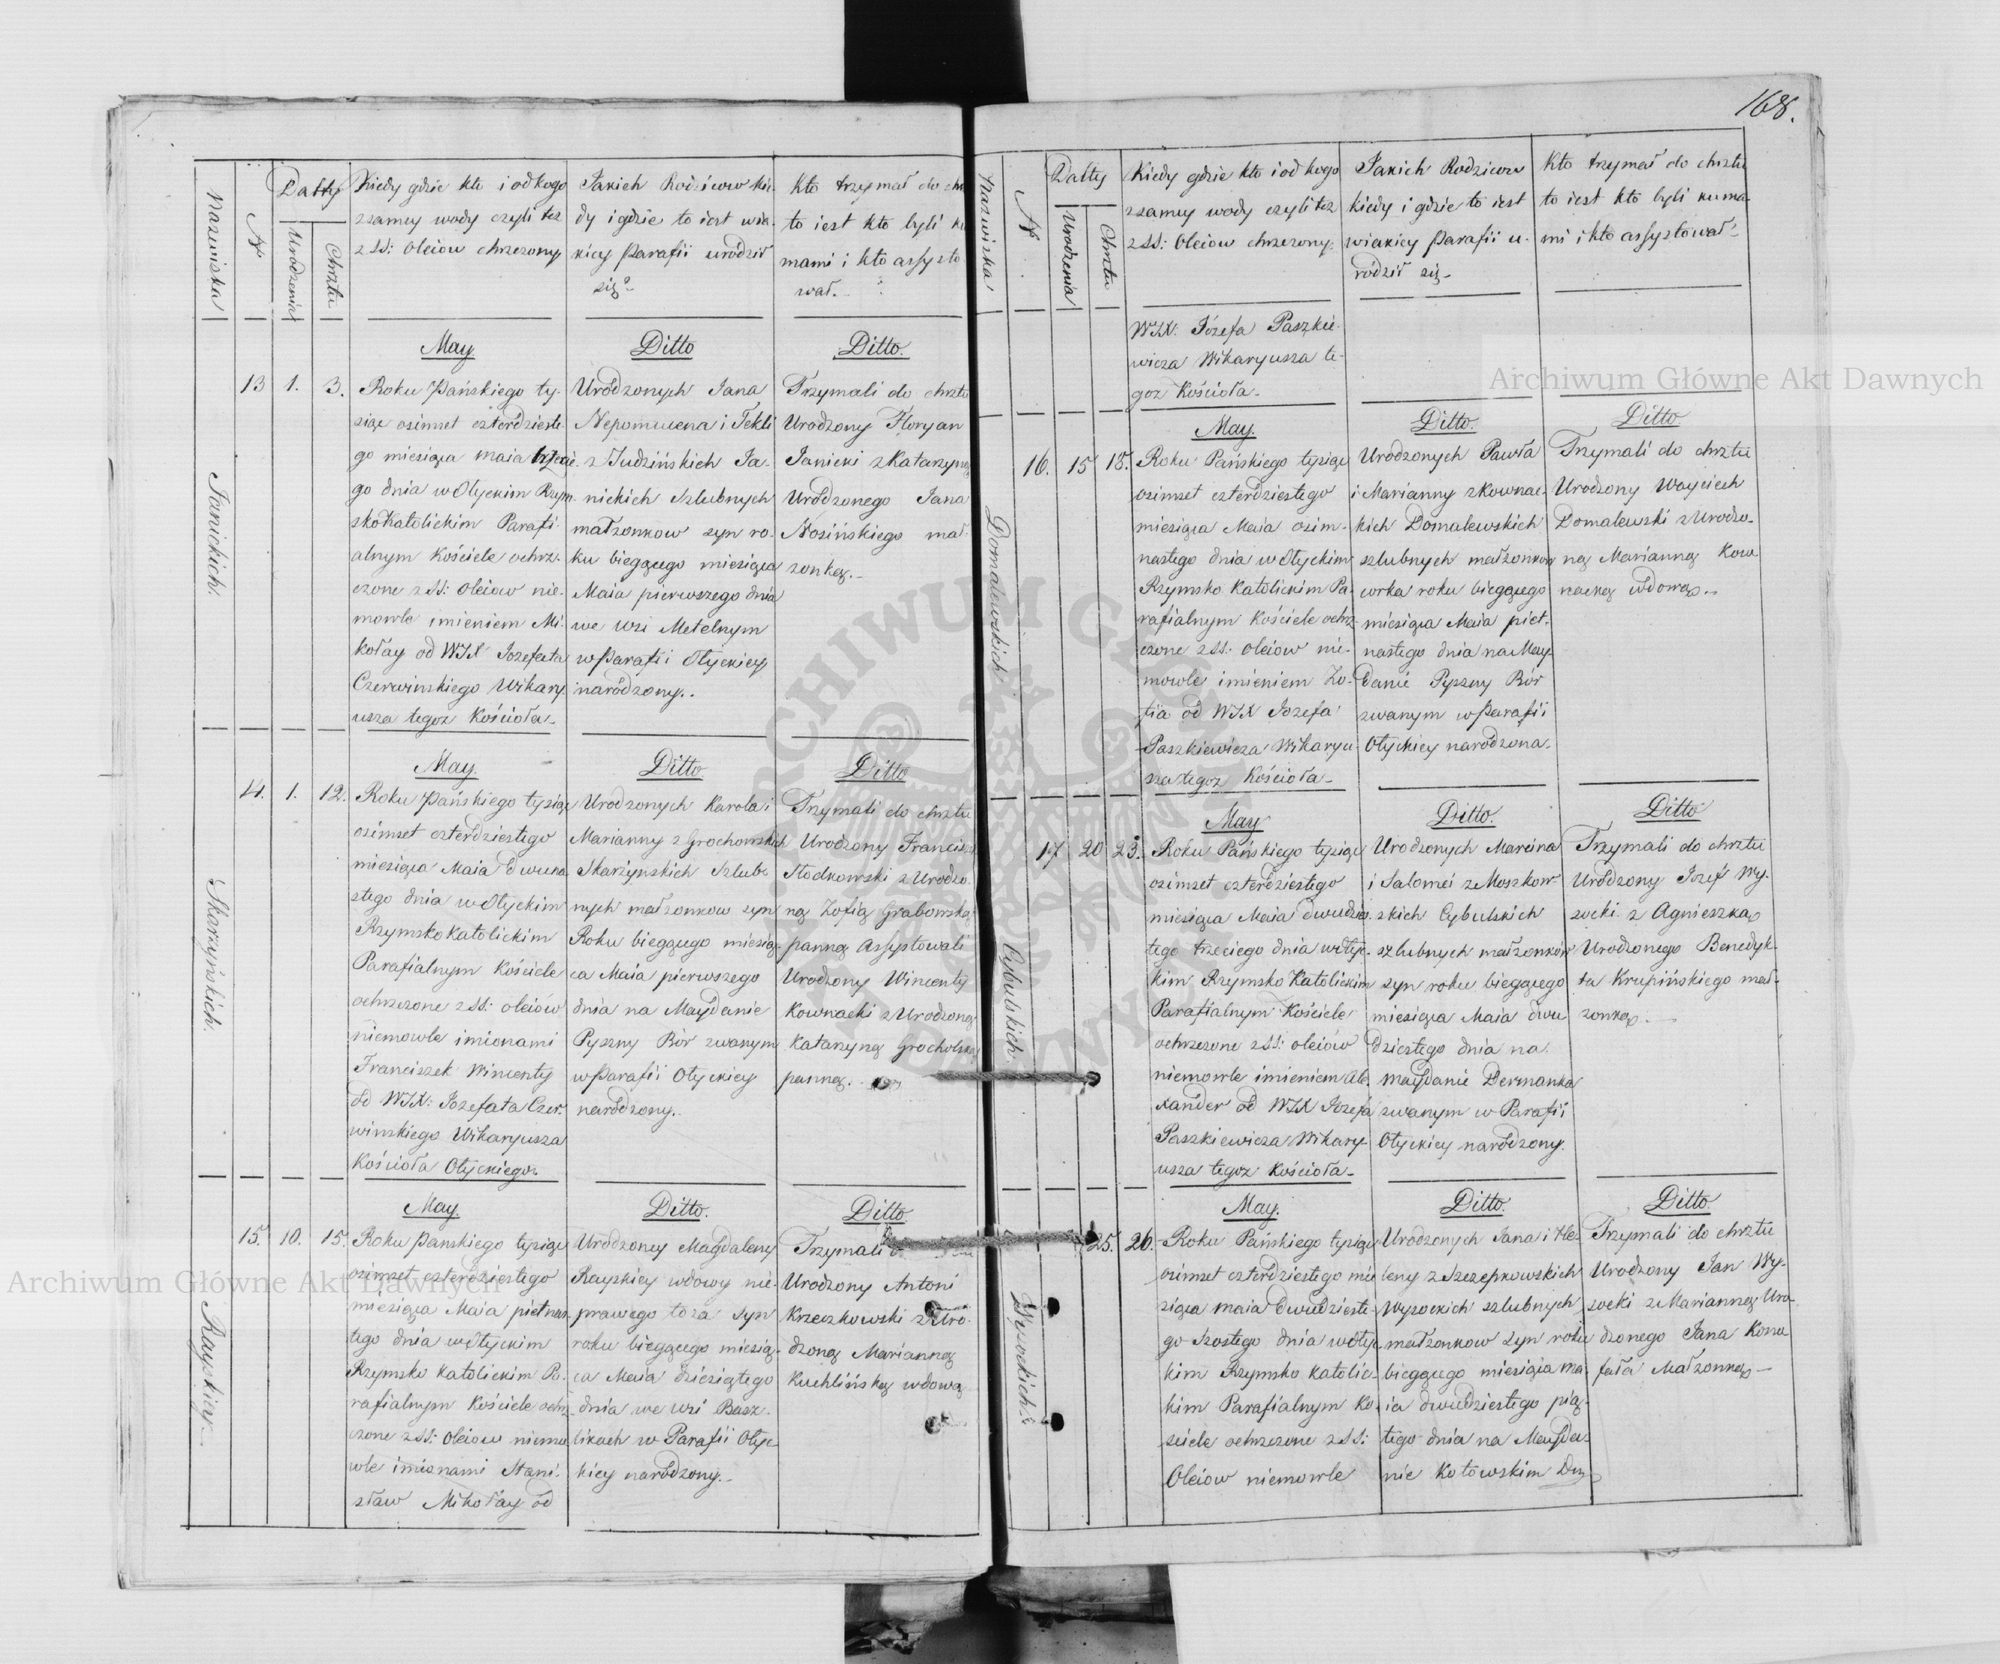 168.
Nazwiska
N.
Datty
Urodzenia
Chrztu
Kiedy gdzie kto i od kogo
z samey wody czyli też
z SS: Oleiow chrzczony
Jakich Rodziców kie-
dy i gdzie to iest w ia-
kiey Parafii urodził
się
Kto trzymał do
to iest kto byli
mami i kto assysto
wał.
Janickich.
13
1.
3.
May.
Roku Pańskiego ty-
siąc osimset czterdzieste-
go miesiąca maia trzecie-
go dnia w Ołyckim Rzym-
sko Katolickim Parafi
alnym Kościele ochrz-
czone z SS: Oleiow nie-
mowle imieniem Mi-
kołay od WJX Jozefata
Czerwinskiego Wikary
usza tegoz Kościoła
Ditto
Urodzonych Jana
Nepomucena i Tekli
z Judzińskich Ja-
nickich szlubnych
małzonkow syn ro-
ku biegącego miesiąca
Maia pierwszego dnia
we wsi Metelnym
w Parafii Ołyckiey
narodzony.
Ditto.
Trzymali do chrztu
Urodzony Floryan
Janicki z Katarzyną
Urodzonego Jana
Nosińskiego mał-
zonką.
Skarzyńskich.
14.
1.
12.
May.
Roku Pańskiego tysiąc
osimset czterdziestego
miesiąca Maia dwuna
stego dnia w Ołyckim
Rzymsko Katolickim
Parafialnym Kościele
ochrzczone z SS: oleiów
niemowle imionami
Franciszek Wincenty
od WJX: Jozefata Czer-
winskiego Wikaryusza
Kościoła Ołyckiego.
Ditto
Urodzonych Karola i
Marianny z Grochowskich
Skarżynskich Szlub
nych małzonkow syn
Roku biegącego miesią
ca Maia pierwszego
dnia na Maydanie
Pyszny Bór zwanym
w Parafii Ołyckiey
narodzony.
Ditto
Trzymali do chrztu
Urodzony Francisz
Słodkowski z Urodzo
ną Zofią Grabowską
panną Assystowali
Urodzony Wincenty
Kownacki z Urodzoną
Katarzyną Grocholską
panną.
Rayskiey.
15.
10.
15.
May.
Roku Panskiego tysiąc
osimset czterdziestego
miesiąca Maia pietnas
tego dnia w Ołyckim
Rzymsko Katolickim Pa-
rafialnym Kościele ochrz-
czone z SS: Oleiow niemo
wle imionami Stani-
sław Mikołay od
Ditto.
Urodzoney Magdaleny
Rayskiey wdowy nie-
prawego łoza syn
roku biegącego miesią-
ca Maia dziesiątego
dnia we wsi Basz-
likach w Parafii Ołyc-
kiey narodzony.
Ditto
Trzymali
Urodzony Antoni
Krzeczkowski z Uro-
dzoną Marianną
Kuchlińską wdową
Nazwiska
N.
Datty
Urodzenia
Chrztu
Kiedy gdzie kto i od kogo
z samey wody czyli tez
z SS: Oleiow chrzczony
Jakich Rodziców
kiedy i gdzie to iest
w iakiey Parafii u-
rodził się
Kto trzymał do chrztu
to iest kto byli kuma-
mi i kto assystował
WJX: Józefa Paszkie-
wicza Wikaryusza te-
goz Kościoła
Domalewskich
16.
15
18.
May.
Roku Pańskiego tysiąc
osimset czterdziestego
miesiąca Maia osim-
nastego dnia w Ołyckim
Rzymsko Katolickim Pa-
rafialnym Kościele ochrz-
czone z SS: oleiow nie-
mowle imieniem Zo-
fia od WJX Jozefa
Paszkiewicza Wikaryu-
sza tegoz Kościoła
Ditto.
Urodzonych Pawła
i Marianny z Kownac-
kich Domalewskich
szlubnych małzonkow
corka roku biegącego
miesiąca Maia piet-
nastego dnia na May
danie Pyszny Bór
zwanym w Parafii
Ołyckiey narodzona.
Ditto
Trzymali do chrztu
Urodzony Woyciech
Domalewski z Urodzo-
ną Marianną Kow
nacką wdową
Cybulskich.
17
20
23.
May
Roku Pańskiego tysiąc
osimset czterdziestego
miesiąca Maia dwudzies
tego trzeciego dnia w Ołyc-
kim Rzymsko Katolickim
Parafialnym Kościele
ochrzczone z SS: oleiów
niemowle imieniem Ale-
xander od WJX Jozefa
Paszkiewicza Wikary-
usza tegoz Kościoła
Ditto.
Urodzonych Marcina
i Salomei z Moszkow-
skich Cybulskich
szlubnych małzonków
syn roku biegącego
miesiąca Maia dwu
dziestego dnia na
maydanie Dermanka
zwanym w Parafii
Ołyckiey narodzony.
Ditto
Trzymali do chrztu
Urodzony Jozef Wy-
socki z Agnieszką
Urodzonego Benedyk-
ta Krupińskiego mał-
zonką.
Wysockich
25.
26.
May.
Roku Pańskiego tysiąc
osimset czterdziestego mie
siąca maia dwudzieste-
go szostego dnia w Ołyc
kim Rzymsko Katolic-
kim Parafialnym Ko-
sciele ochrzczone z SS:
Oleiow niemowle
Ditto.
Urodzonych Jana i He-
leny z Szczepkowskich
Wysockich szlubnych
małzonkow syn roku
biegącego miesiąca ma-
ia dwudziestego pią-
tego dnia na Mayda-
nie Kotowskim
Ditto.
Trzymali do chrztu
Urodzony Jan Wy-
socki z Marianną Uro
dzonego Jana Kona
fała Małzonką
Archiwum Główne Akt Dawnych
Archiwum Główne Akt Dawnych